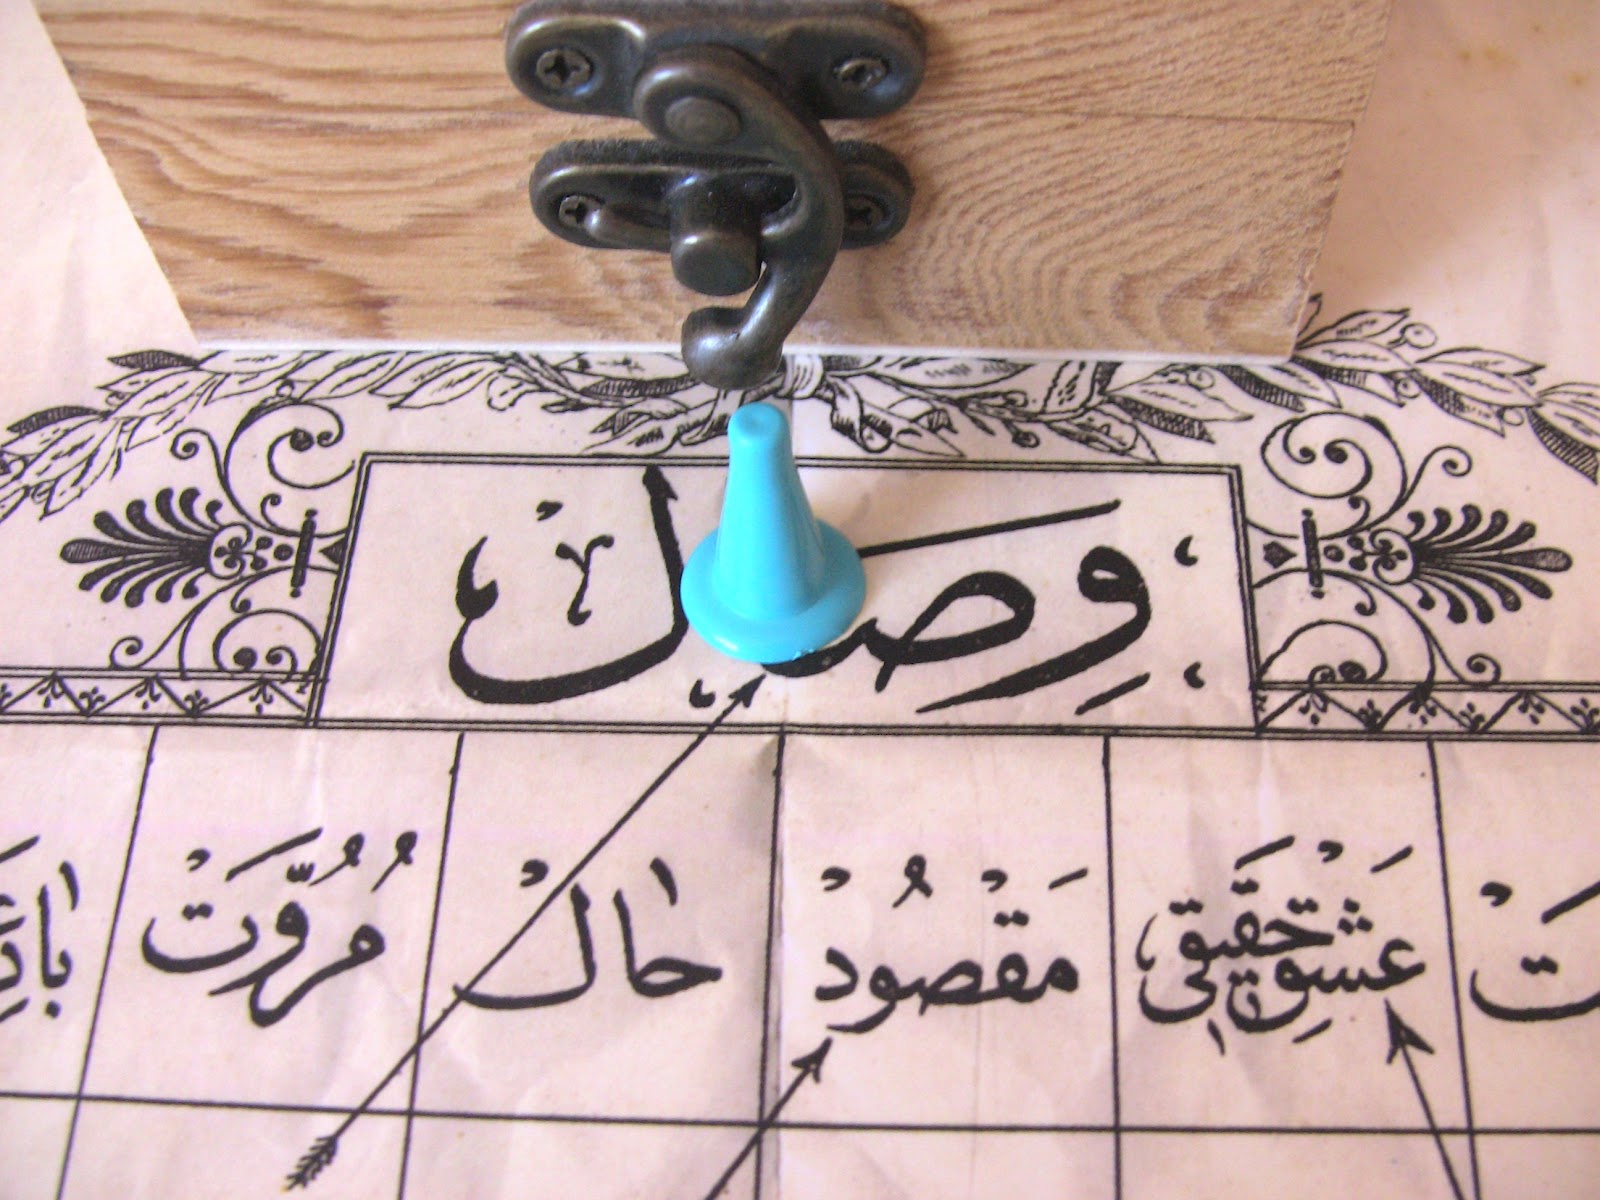 وِصَالْ
عَشْقِ حَقِيقِي مَقْصُودْ حٰالْ مُرُوَّتْ